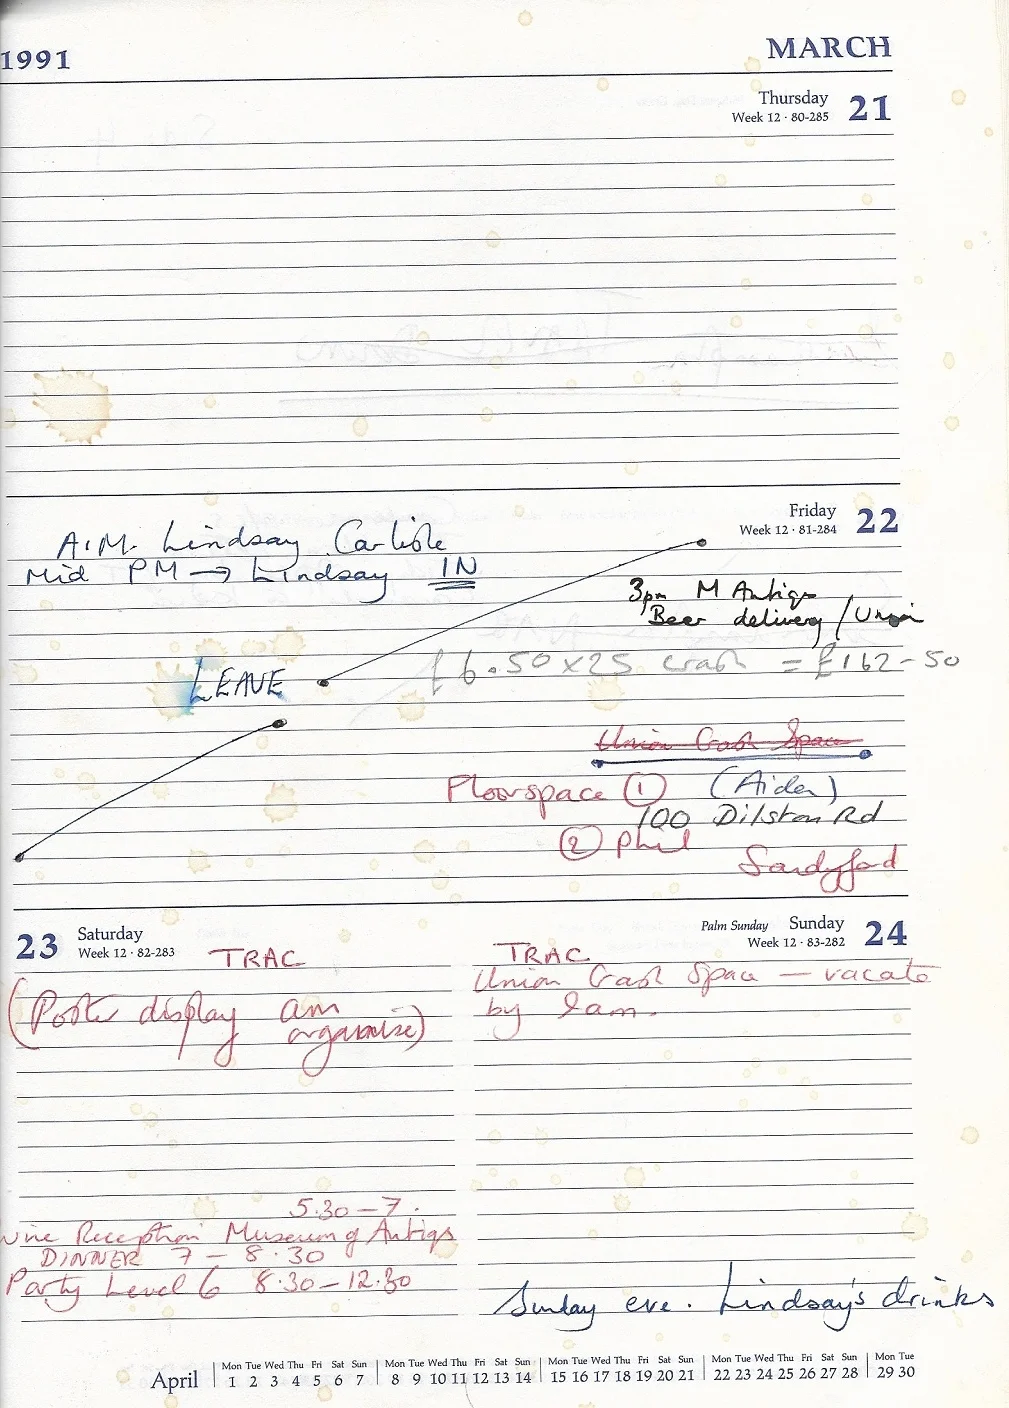 1991
MARCH
Thursday 21
Week 12 · 80-285
Friday 22
Week 12 · 81-284
A.M. Lindsay Carlisle
Mid PM → Lindsay IN
3pm M Antiqs
Beer delivery / Union
£6.50 x 25 crash = £162-50
LEAVE
Union Crash Space
Floorspace ① (Aiden)
100 Dilston Rd
② Phil
Sandyford
23 Saturday
Week 12 · 82-283
TRAC
(Poster display am
organise)
5.30 – 7.
Wine Reception Museum of Antiqs
DINNER 7 – 8.30
Party Level 6 8.30 – 12.30
Palm Sunday Sunday 24
Week 12 · 83-282
TRAC
Union Crash Space – vacate
by 9am.
Sunday eve. Lindsay's drinks
April
Mon Tue Wed Thu Fri Sat Sun Mon Tue Wed Thu Fri Sat Sun Mon Tue Wed Thu Fri Sat Sun Mon Tue Wed Thu Fri Sat Sun Mon Tue
1 2 3 4 5 6 7 8 9 10 11 12 13 14 15 16 17 18 19 20 21 22 23 24 25 26 27 28 29 30